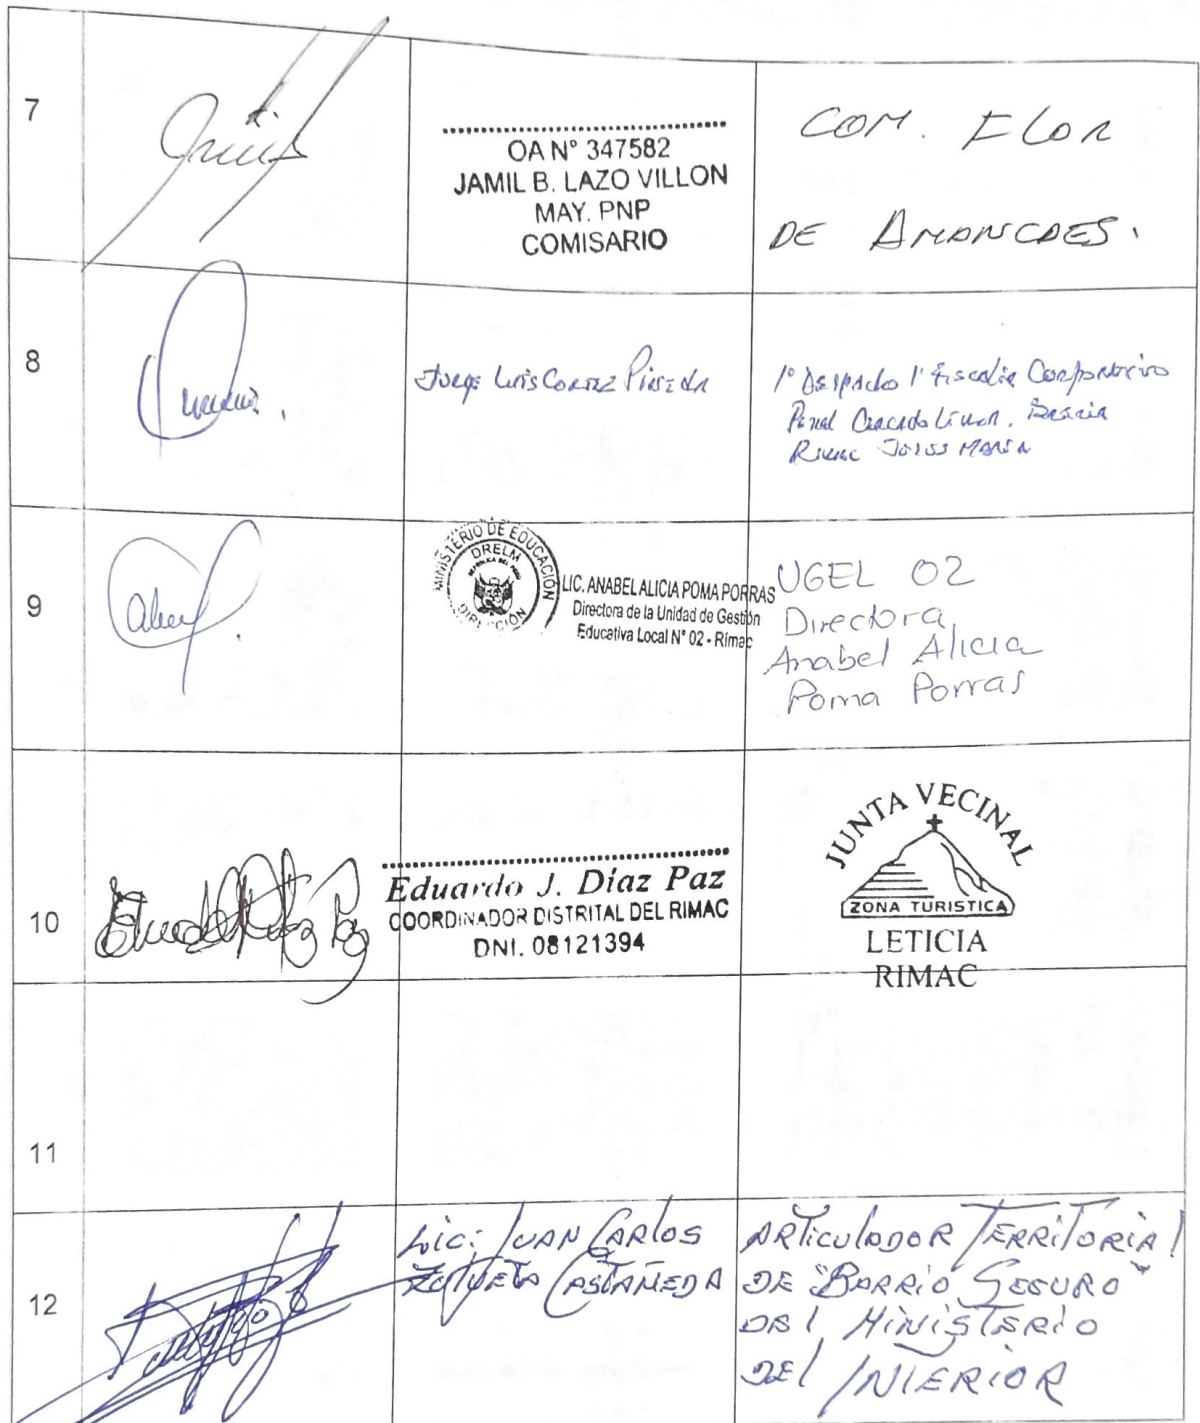 7
OA N° 347582
JAMIL B. LAZO VILLON
MAY. PNP
COMISARIO
COM. FLOR
DE AMANCAES.
8
Jorge Luis Cortez Pineda
1° Despacho 1° Fiscalia Corporativa
Penal Cercado Lima. Breña
Rimac Jesus Maria
9
MINISTERIO DE EDUCACIÓN
DRELM
DIRECCIÓN
LIC. ANABEL ALICIA POMA PORRAS
Directora de la Unidad de Gestión
Educativa Local N° 02 - Rimac
UGEL 02
Directora
Anabel Alicia
Poma Porras
10
Eduardo J. Díaz Paz
COORDINADOR DISTRITAL DEL RIMAC
DNI. 08121394
JUNTA VECINAL
ZONA TURISTICA
LETICIA
RIMAC
11
12
Lic: JUAN CARLOS
ZULUETA CASTAÑEDA
ARTICULADOR TERRITORIAL
DE "BARRIO SEGURO"
DEL MINISTERIO
DEL INTERIOR